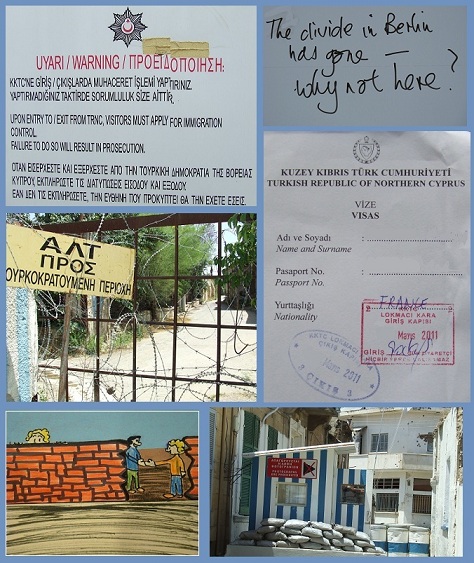 UYARI / WARNING / ΠΡΟΕΙΔΟΠΟΙΗΣΗ:
KKTC'NE GİRİŞ / ÇIKIŞLARDA MUHACERET İŞLEMİ YAPTIRINIZ.
YAPTIRMADIĞINIZ TAKTİRDE SORUMLULUK SİZE AİTTİR.
UPON ENTRY TO / EXIT FROM TRNC, VISITORS MUST APPLY FOR IMMIGRATION
CONTROL.
FAILURE TO DO SO WILL RESULT IN PROSECUTION.
ΟΤΑΝ ΕΙΣΕΡΧΕΣΤΕ ΚΑΙ ΕΞΕΡΧΕΣΤΕ ΑΠΟ ΤΗΝ ΤΟΥΡΚΙΚΗ ΔΗΜΟΚΡΑΤΙΑ ΤΗΣ ΒΟΡΕΙΑΣ
ΚΥΠΡΟΥ, ΕΚΠΛΗΡΩΣΤΕ ΤΙΣ ΔΙΑΤΥΠΩΣΕΙΣ ΕΙΣΟΔΟΥ ΚΑΙ ΕΞΟΔΟΥ.
ΕΑΝ ΔΕΝ ΤΙΣ ΕΚΠΛΗΡΩΣΕΤΕ, ΤΗΝ ΕΥΘΥΝΗ ΠΟΥ ΠΡΟΚΥΠΤΕΙ ΘΑ ΤΗΝ ΕΧΕΤΕ ΕΣΕΙΣ.
The divide in Berlin
has gone —
why not here?
KUZEY KIBRIS TÜRK CUMHURİYETİ
TURKISH REPUBLIC OF NORTHERN CYPRUS
VİZE
VISAS
Adı ve Soyadı
Name and Surname
Pasaport No.
Passport No.
Yurttaşlığı
Nationality
FRANKE
LOKMACI KARA
GİRİŞ KAPISI
Mayıs 2011
GİRİŞ
KKTC LOKMACI
GİRİŞ KAP
Mayıs 2011
ΑΛΤ
ΠΡΟΣ
ΟΥΡΚΟΚΡΑΤΟΥΜΕΝΗ ΠΕΡΙΟΧΗ